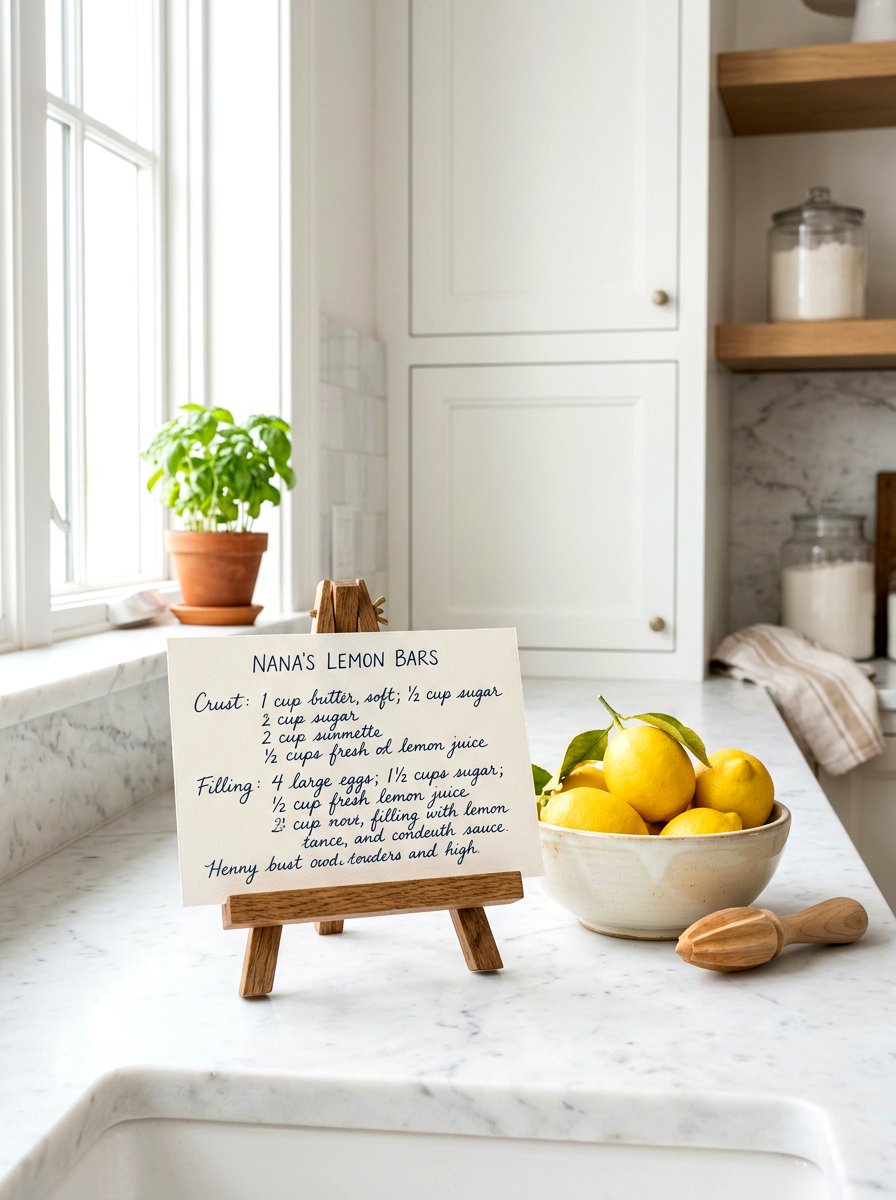 NANA'S LEMON BARS
Crust: 1 cup butter, soft; ½ cup sugar
2 cup sugar
2 cup sunmette
½ cups fresh od lemon juice
Filling: 4 large eggs; 1½ cups sugar;
½ cup fresh lemon juice
2 cup nour, filling with lemon
tance, and condeuth sauce.
Henny bust owd, touders and high.